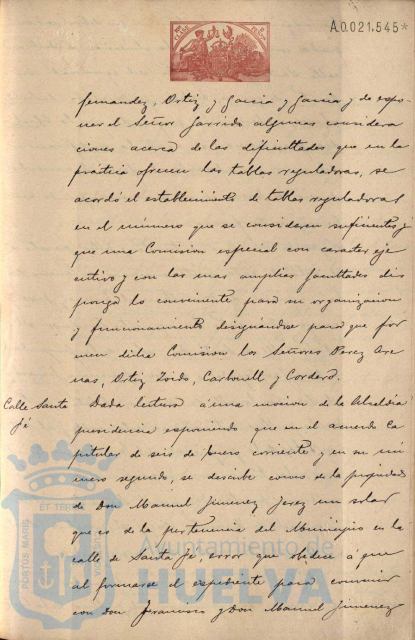 A.0.021.545*
fernandez, Ortiz y Garcia y Garcia y de expo
ner el Señor Garrido algunas considera
ciones acerca de las dificultades que en la
práctica ofrecen las tablas reguladoras, se
acordó el establecimiento de tablas reguladoras
en el número que se consideren suficientes y
que una Comision especial con caracter eje
cutivo y con las mas amplias facultades dis
ponga lo conveniente para su organizacion
y funcionamiento designándose para que for
men dicha Comision los Señores Perez Are
nas, Ortiz Toido, Carbonell y Cordero.
Calle Santa
fé
Dada lectura á una mocion de la Alcaldia
presidencia exponiendo que en el acuerdo Ca
pitular de seis de Enero corriente y en su nú
mero segundo, se describe como de la propiedad
de Don Manuel Jimenez Jerez un solar
que es de la pertenencia del Municipio en la
calle de Santa fé, error que obedece á que
al formarse el expediente para convenir
con Don Francisco y Don Manuel Jimenez
PORTUS MARIS ET TERR
Ayuntamiento de
HUELVA